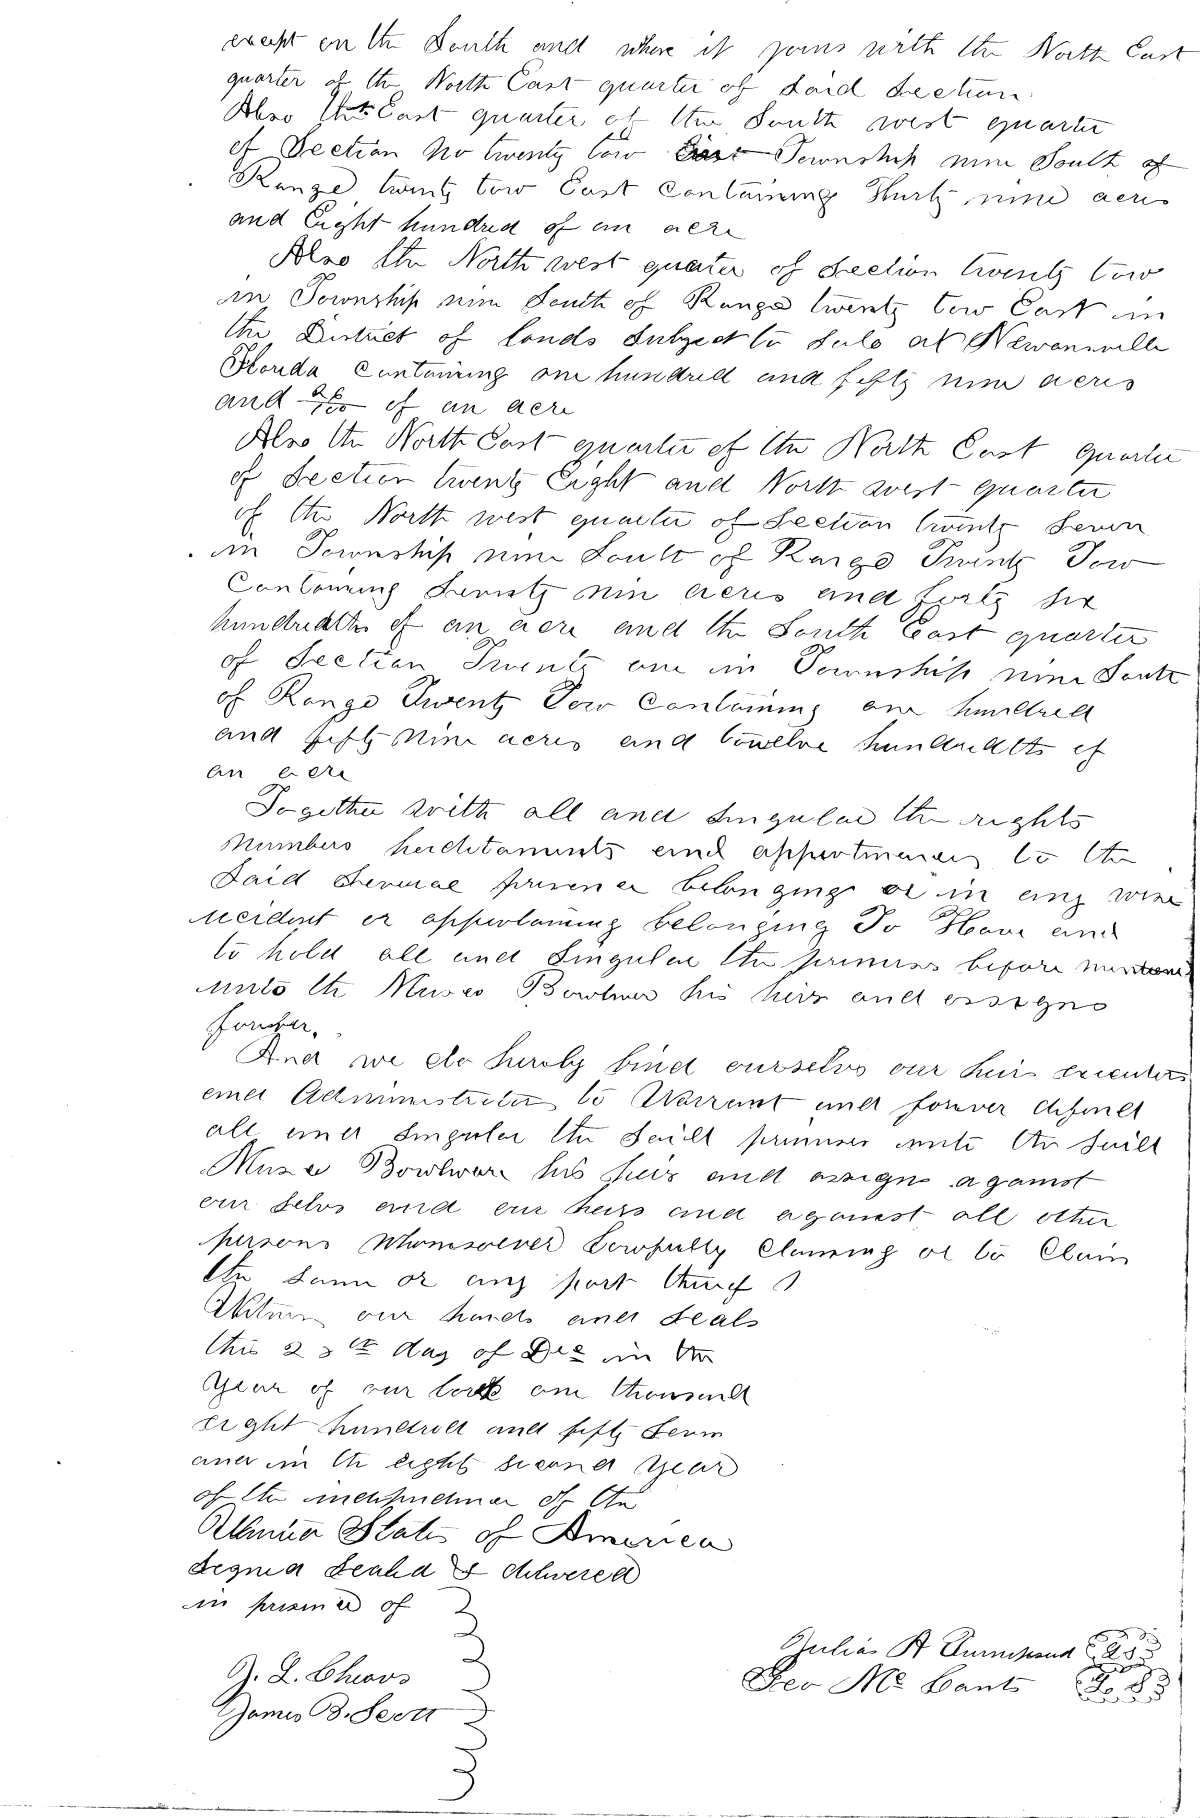 except on the South and where it joins with the North East
quarter of the North East quarter of Said Section.
Also the East quarter of the South west quarter
of Section No twenty tow East Township nine South of
Range twenty tow East Containing Thirty nine acres
and Eight hundred of an acre
Also the North west quarter of Section twenty tow
in Township nine South of Range twenty tow East in
the District of lands Subject to Sale at Newansville
Florida Containing one hundred and fifty nine acres
and /100 of an acre
Also the North East quarter of the North East quarter
of Section twenty Eight and North west quarter
of the North west quarter of Section twenty Seven
in Township nine South of Range Twenty Tow
Containing Seventy nin acres and forty six
hundredths of an acre and the South East quarter
of Section Twenty one in Township nine South
of Range Twenty Tow Containing one hundred
and fifty nine acres and twelve hundredths of
an acre
Together with all and Singular the rights
Members herditaments and appertinances to the
Said Several belonging or in any wise
incident or appertaining belonging To Have and
to hold all and Singular the primises before mentioned
unto the Moses Bowlware his heirs and assigns
forever.
And we do hereby bind ourselvs our heirs executors
and Administrators to Warrant and forever defend
all and Singular the Said primises unto the Said
Moses Bowlware his heirs and assigns against
our Selvs and our heirs and against all other
persons Whomsoever Lawfully Claiming or to Claim
the Same or any part thereof
Witness our hands and Seals
this 28th day of Dec in the
Year of our lord one thousand
eight hundred and fifty Seven
and in the eighty second Year
of the independence of the
United States of America
Signed Seald & delivered
in presince of
Julias A
J. L.
Geo Mc Cants L S
James B. Scott